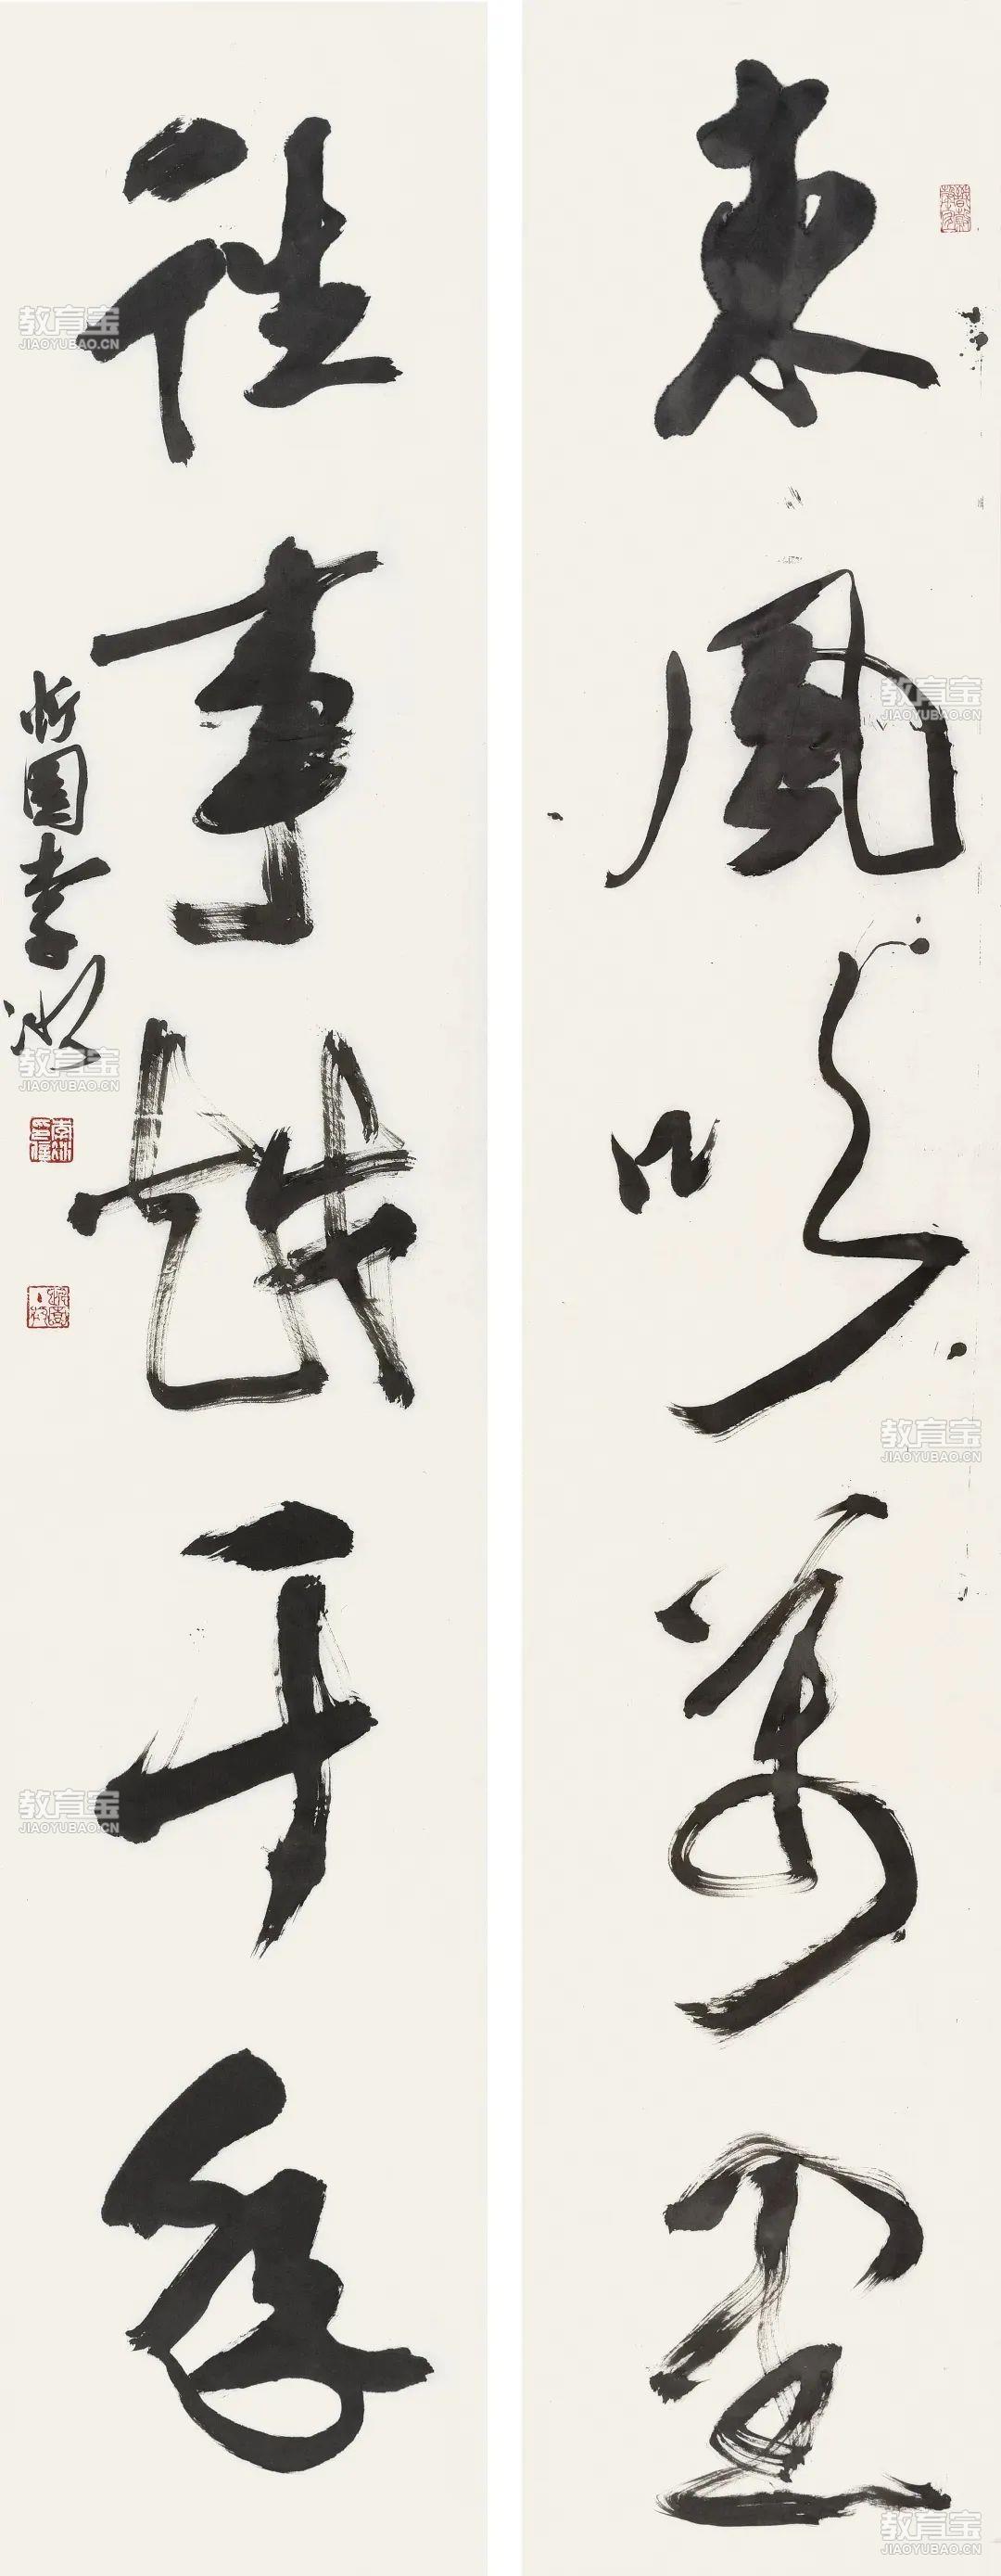 東風吹萬
往事越千年
忻園李冰
教育宝
JIAOYUBAO.CN
教育宝
JIAOYUBAO.CN
教育宝
JIAOYUBAO.CN
教育宝
JIAOYUBAO.CN
教育宝
JIAOYUBAO.CN
教育宝
JIAOYUBAO.CN